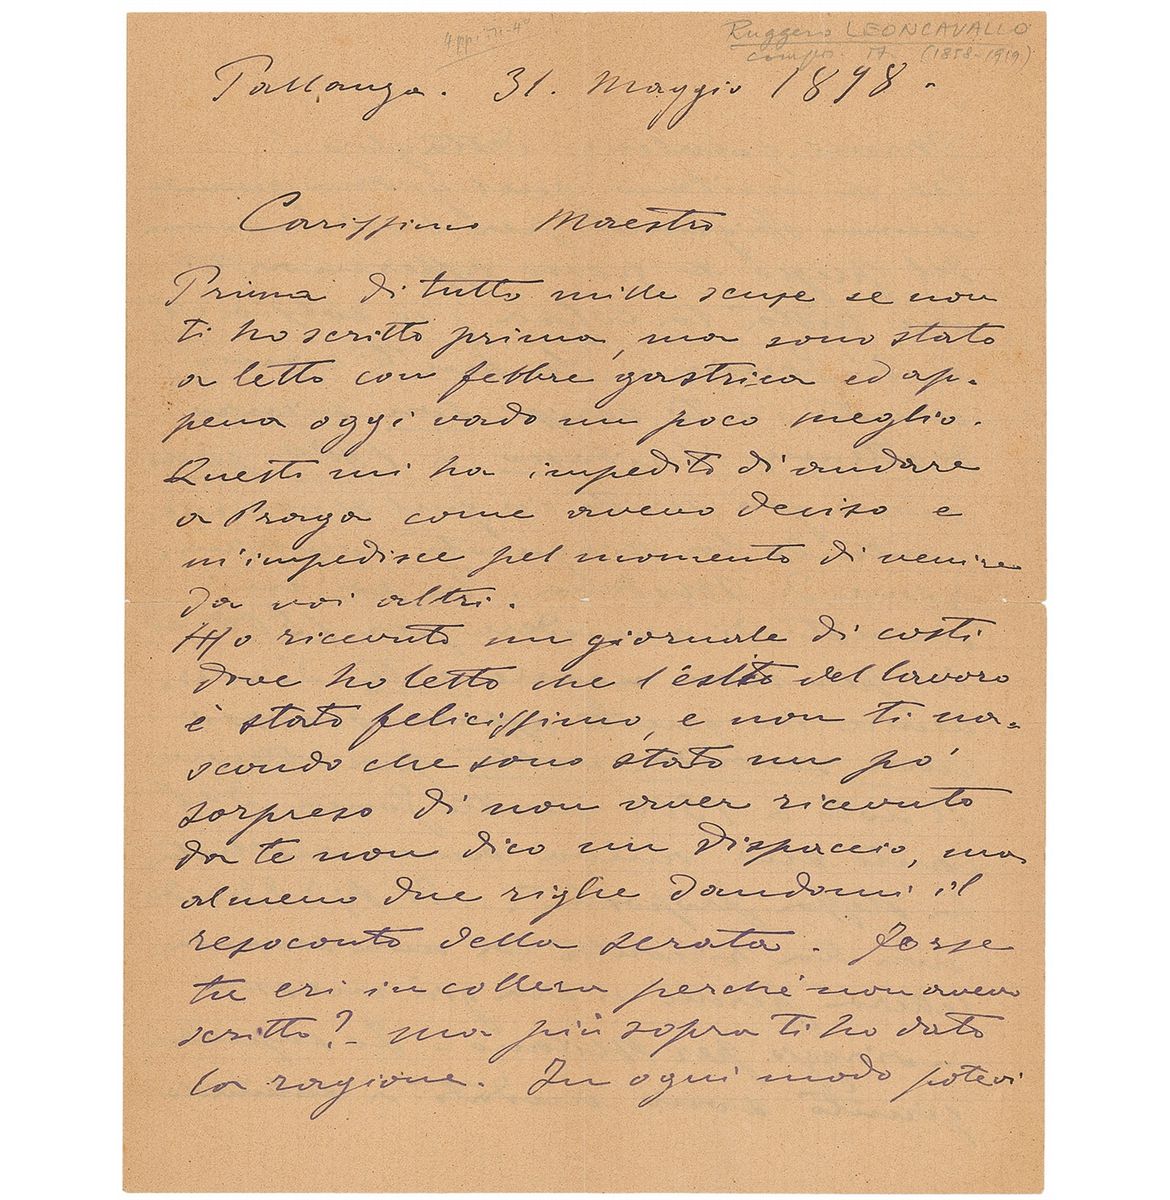 4 pp. in-4°
Ruggero LEONCAVALLO
compos. it. (1858-1919)
Pallanza. 31. Maggio 1898.
Carissimo Maestro
Prima di tutto mille scuse se non
ti ho scritto prima, ma sono stato
a letto con febbre gastrica ed ap-
pena oggi vado un poco meglio.
Questo mi ha impedito di andare
a Praga come avevo deciso e
m'impedisce pel momento di venire
da voi altri.
Ho ricevuto un giornale di costì
dove ho letto che l'esito del lavoro
è stato felicissimo, e non ti na-
scondo che sono stato un pò
sorpreso di non aver ricevuto
da te non dico un dispaccio, ma
almeno due righe dandomi il
resoconto della serata. Forse
tu eri in collera perché non avevo
scritto? - ma più sopra ti ho dato
la ragione. In ogni modo potevi